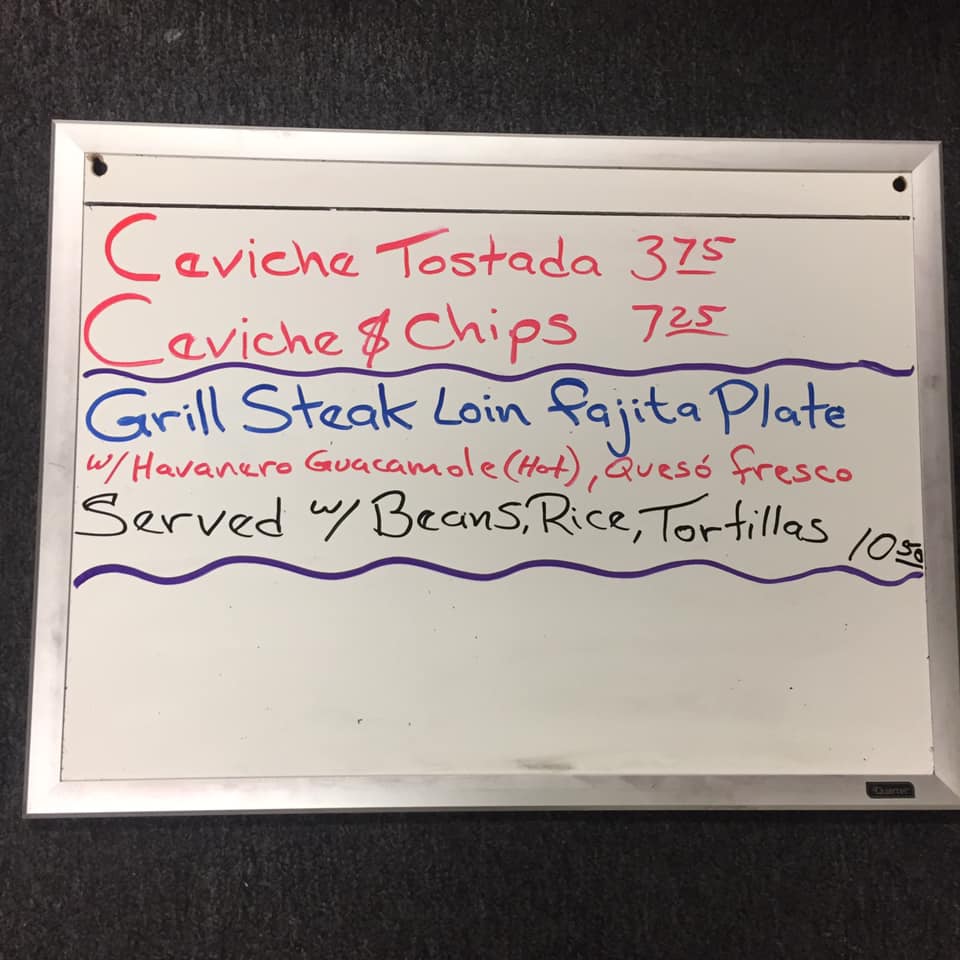 Ceviche Tostada 3 75
Ceviche & Chips 7 25
Grill Steak Loin fajita Plate
w/ Havanero Guacamole (Hot), Quesó fresco
Served w/ Beans, Rice, Tortillas 10 50
Quartet